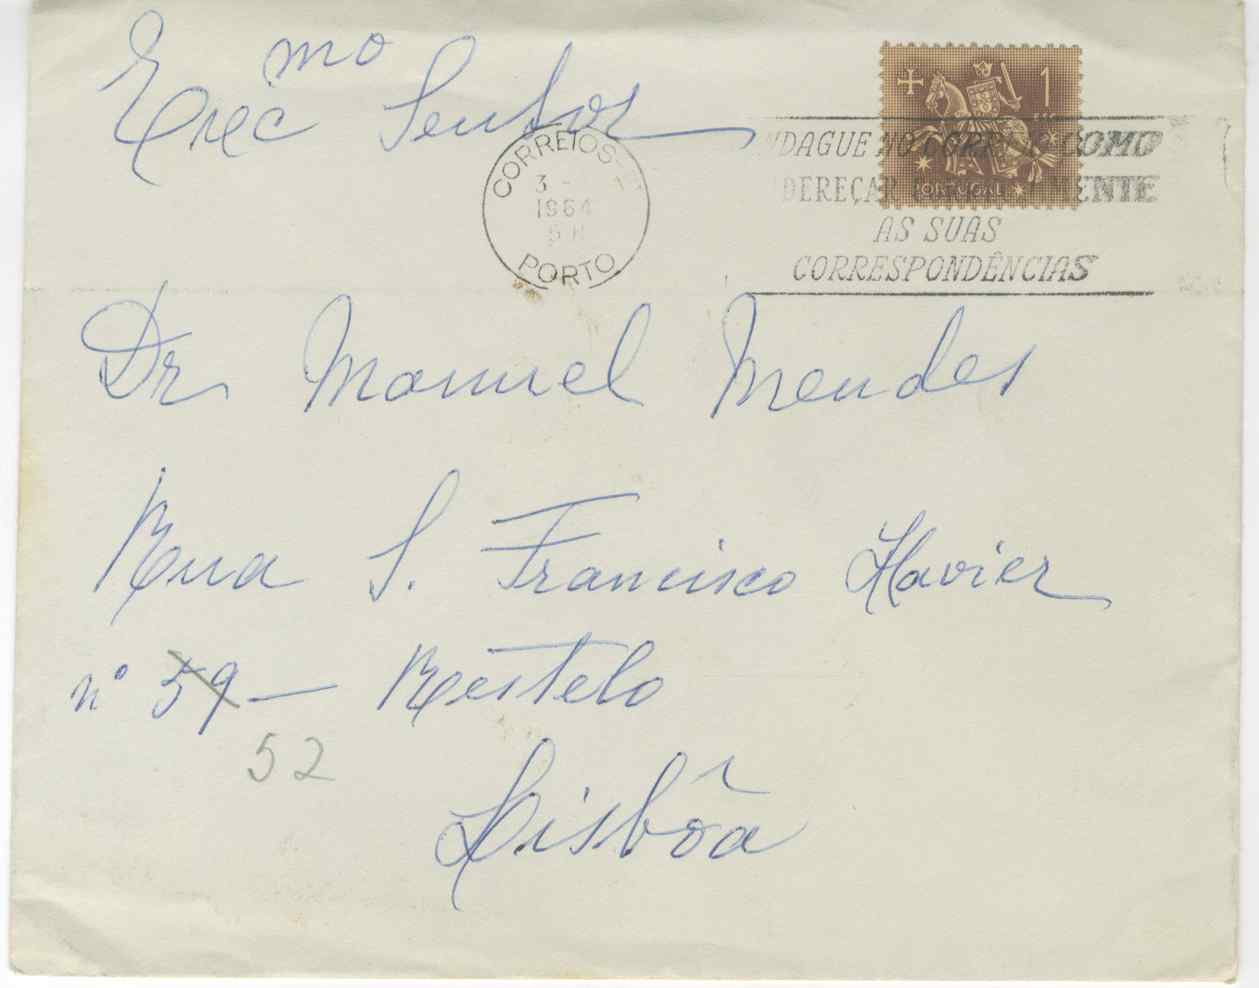 Exc mo Senhor
1
PORTUGAL
CORREIOS
3 -
1964
PORTO
NDAGUE NO CORREIO COMO
DEREÇAR MENTE
AS SUAS
CORRESPONDÊNCIAS
Dr. Manuel Mendes
Rua S. Francisco Xavier
nº 59 — Restelo
52
Lisbôa